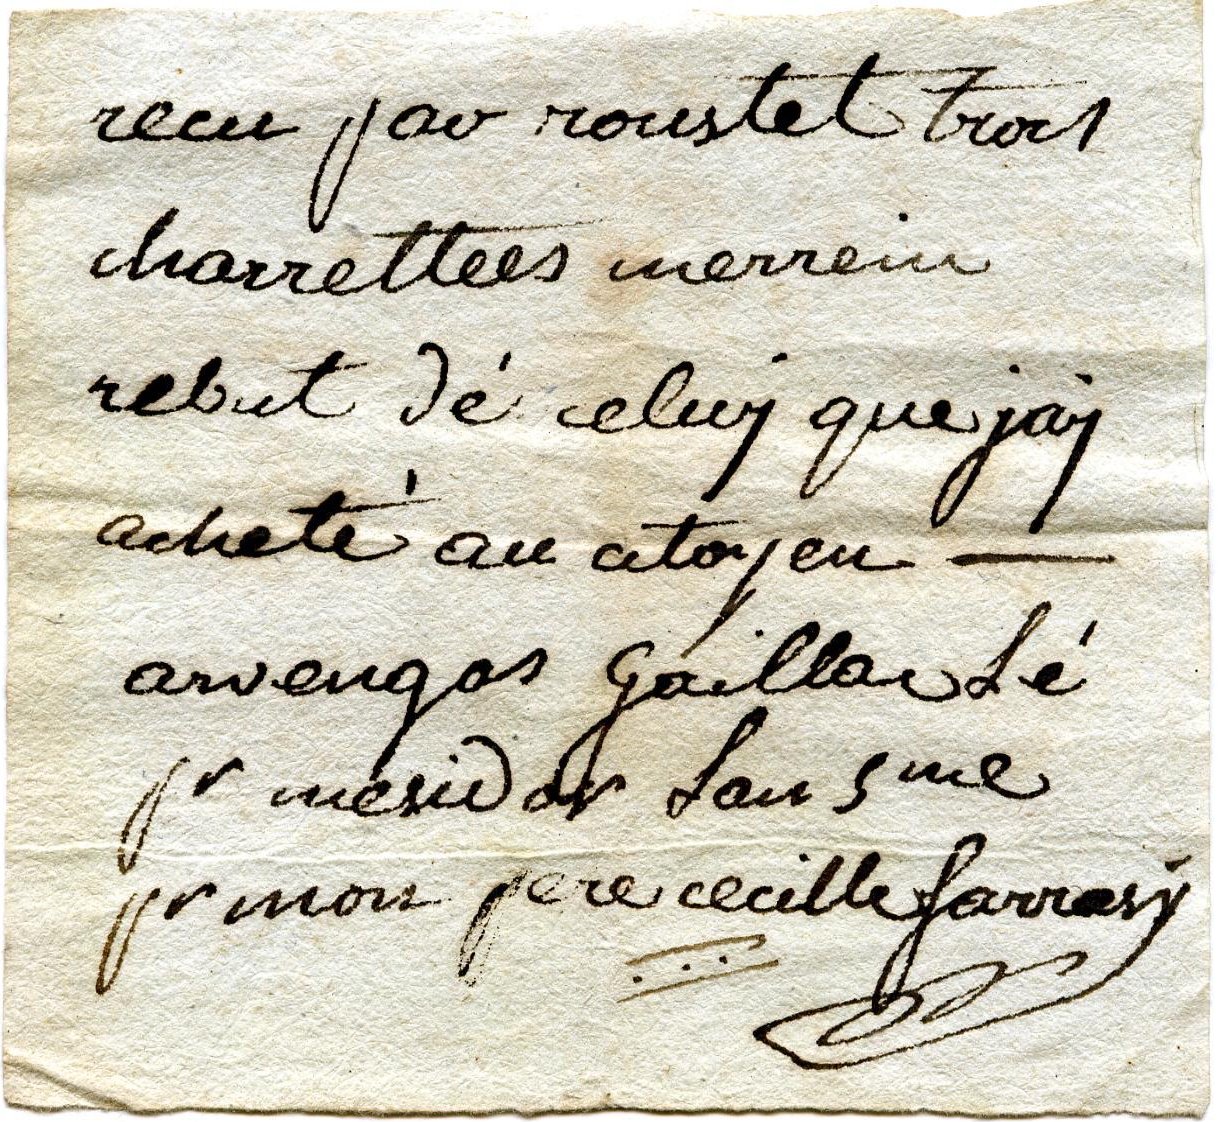 recu par roustet trois
charrettees merrein
rebut dé celuy que jay
acheté au citoyen —
arvengas Gaillac Lé
pr mésidor Lan 5me
pr mon pere cecille farrasÿ